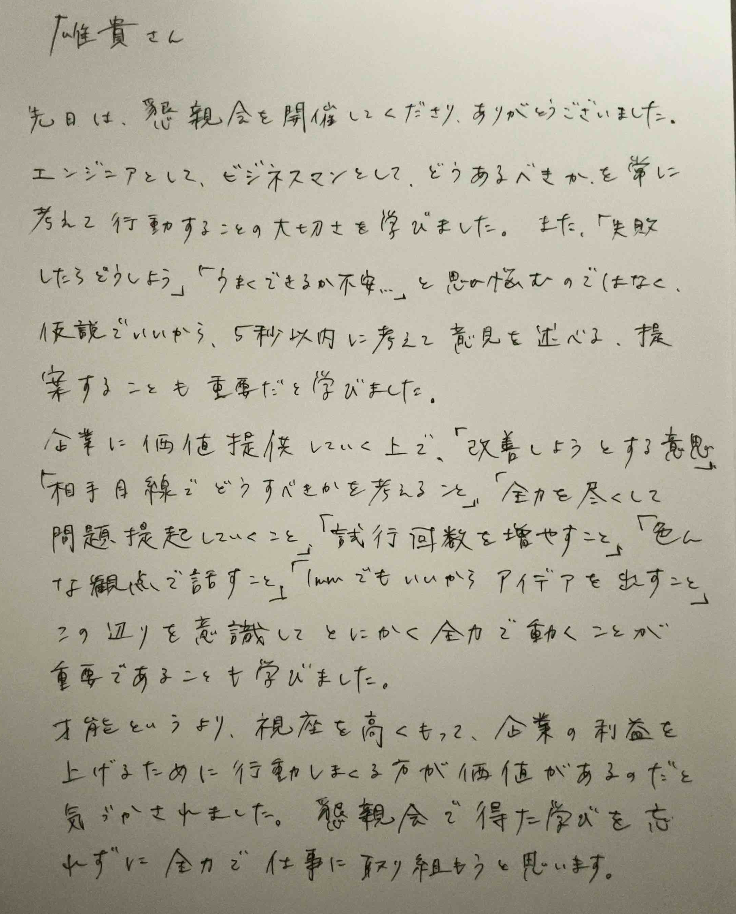 雄貴さん
先日は、懇親会を開催してくださり、ありがとうございました。
エンジニアとして、ビジネスマンとして、どうあるべきか、を常に
考えて行動することの大切さを学びました。また、「失敗
したらどうしよう」「うまくできるか不安…」と思い悩むのではなく、
仮説でいいから、5秒以内に考えて意見を述べる、提
案することも重要だと学びました。
企業に価値提供していく上で、「改善しようとする意思」
「相手目線でどうすべきかを考えること」「全力を尽くして
問題提起していくこと」「試行回数を増やすこと」「色ん
な観点で話すこと」「1mmでもいいからアイデアを出すこと」
この辺りを意識してとにかく全力で動くことが
重要であることも学びました。
才能というより、視座を高くもって、企業の利益を
上げるために行動しまくる方が価値があるのだと
気づかされました。懇親会で得た学びを忘
れずに全力で仕事に取り組もうと思います。